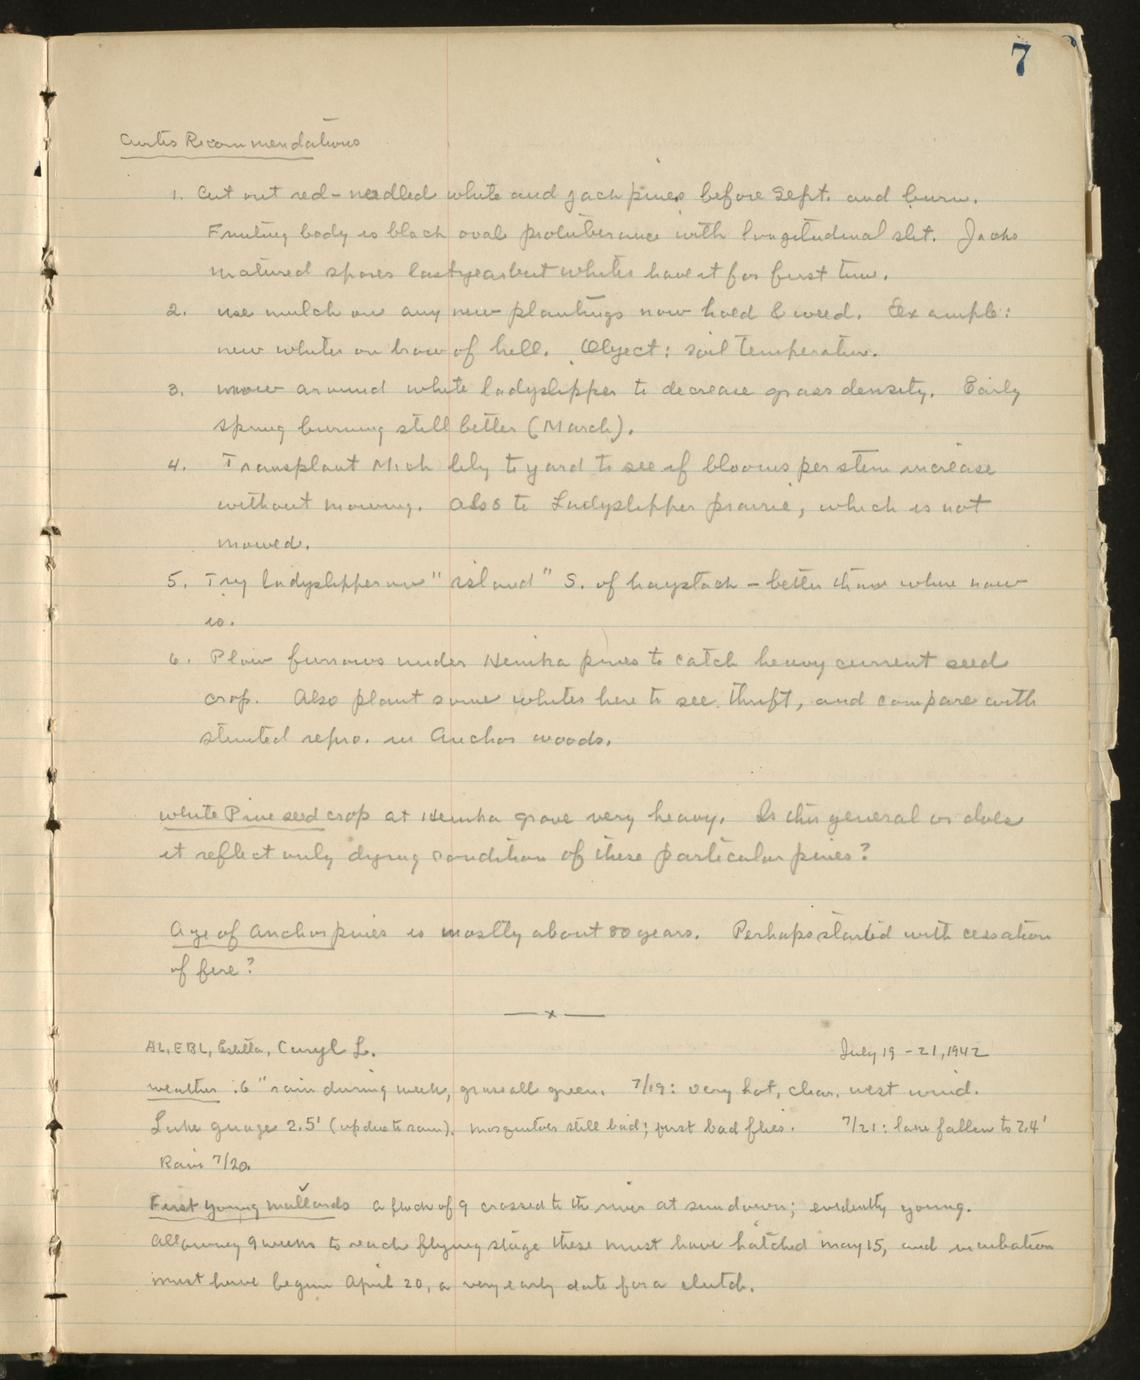 7
Curtis Recommendations
1. Cut out red-needled white and jack pines before Sept. and burn.
Fruiting body is black oval protuberance with longitudinal slit. Jacks
matured spores last year but whites have it for first time.
2. Use mulch on any new plantings now hoed & weed. Example:
new whites on brow of hill. Object: soil temperature.
3. Mow around white ladyslipper to decrease grass density. Early
spring burning still better (March).
4. Transplant Mich lily to yard to see if blooms per stem increase
without mowing. Also to Ladyslipper prairie, which is not
mowed.
5. Try ladyslipper on "island" S. of haystack - better than where now
is.
6. Plow furrows under Hemika pines to catch heavy current seed
crop. Also plant some whites here to see thrift, and compare with
stunted repro. in Anchor woods.
White Pine seed crop at Hemika grove very heavy. Is this general or does
it reflect only dying condition of these particular pines?
Age of Anchor pines is mostly about 80 years. Perhaps started with cessation
of fire?
x
AL, EBL, Estella, Curyl L. July 19-21, 1942
Weather .6" rain during week, grass all green. 7/19: very hot, clear, west wind.
Lake guage 2.5' (up due to rain). Mosquitoes still bad; first bad flies. 7/21: lake fallen to 2.4'
Rain 7/20.
First young mallards a flock of 9 crossed to the river at sundown; evidently young.
Allowing 9 weeks to reach flying stage these must have hatched May 15, and incubation
must have begun April 20, a very early date for a clutch.